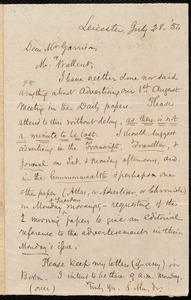 Leicester, July 28. '54
Dear Mr Garrison,
Mr. Wallcut,
I have neither done nor said
anything about Advertising our 1st August
Meeting in the Daily papers. Please
attend to this without delay, as there is not
a minute to be lost. I should suggest
advertising in the Transcript, Traveller, &
Journal on Sat. & Monday afternoons, and
in the Commonwealth & perhaps one
other paper (Atlas, or Advertiser, or Chronicle)
on Monday mornings, - requesting of the
2 morning papers to give an editorial
reference to the advertisements in their
Monday's issue.
Please keep my letters (if any) in
Boston. I intend to be there 9 a.m. Monday.
(over) Truly yrs. S. May, Jr.